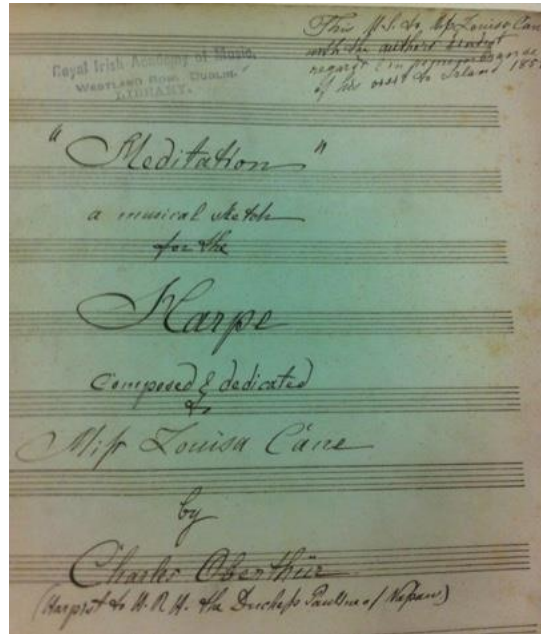 This M.S. to Miss Louisa Cane
with the authors kindest
regards & in remembrance
of his visit to Ireland 185
Royal Irish Academy of Music,
WESTLAND ROW, DUBLIN.
LIBRARY.
"Meditation"
a musical sketch
for the
Harpe
Composed & dedicated
to
Miss Louisa Cane
by
Charles Oberthür
(Harpist to H.R.H. the Duchess Pauline of Nassau)